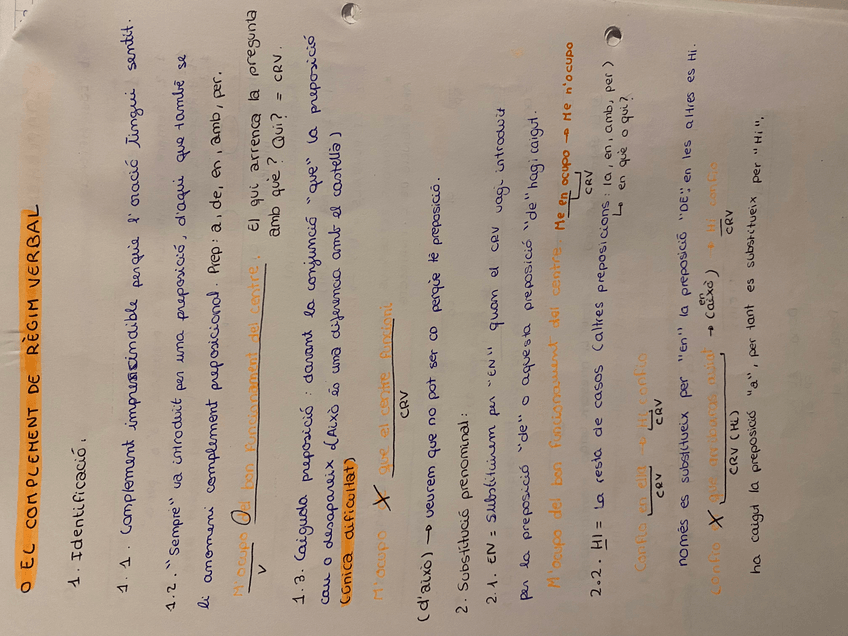 O EL COMPLEMENT DE RÈGIM VERBAL
1. Identificació.
1.1. Complement imprescindible perquè l'oració tingui sentit.
1.2. "Sempre" va introduït per una preposició, d'aquí que també se
li anomeni complement preposicional. Prep: a, de, en, amb, per.
M'ocupo del bon funcionament del centre. El qui arrenca la pregunta
V
amb què? Qui? = CRV.
1.3. Caiguda preposició: davant la conjunció "que" la preposició
cau o desapareix (Això és una diferència amb el castellà)
(única dificultat)
M'ocupo X que el centre funcioni
CRV
(d'això) → veurem que no pot ser CD perquè té preposició.
2. Substitució pronominal:
2.1. EN = Substituirem per "EN" quan el CRV vagi introduït
per la preposició "de" o aquesta preposició "de" hagi caigut.
M'ocupo del bon funcionament del centre. Me en ocupo → Me n'ocupo
CRV
2.2. HI = La resta de casos (altres preposicions: a, en, amb, per)
↳ en què o qui?
Confio en ells → Hi confio
CRV CRV
només es substitueix per "En" la preposició "DE", en les altres es Hi.
Confio X que aprovaràs → (en això) → Hi confio
CRV (Hi) CRV
ha caigut la preposició "a", per tant es substitueix per "Hi".